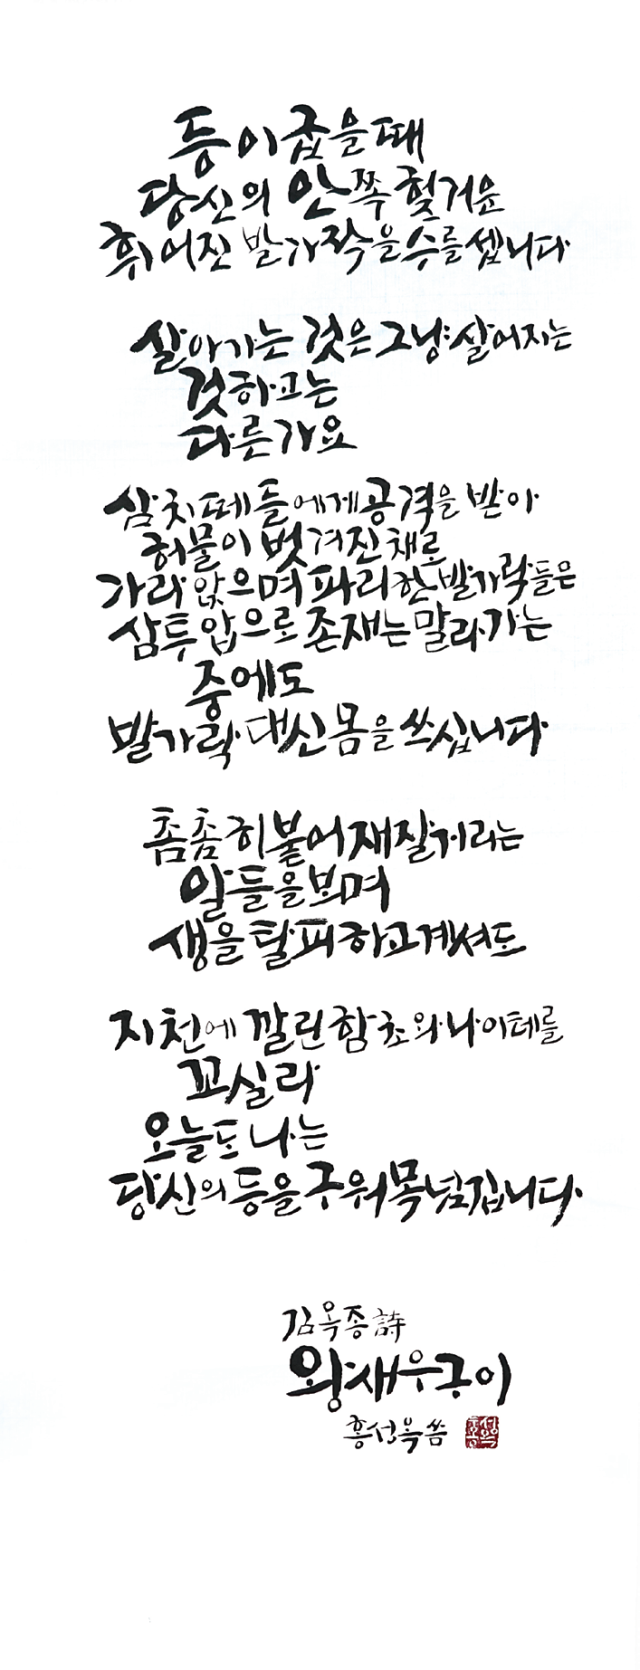 등이 굽을 때
당신의 안쪽 헞거운
휘어진 발가락을 수를 셉니다
살아가는 것은 그냥 살어지는
것하고는
다른가요
삼치 떼들에게 공격을 받아
허물이 벗겨진 채로
가라앉으며 파리한 발가락들은
삼투압으로 존재는 말라가는
중에도
발가락 대신 몸을 쓰십니다
촘촘히 붙어 재잘거리는
알들을 보며
생을 탈피하고 계셔도
지천에 깔린 함초와 나이테를
꼬실라
오늘도 나는
당신의 등을 구워 목넘깁니다.
김옥종 詩
왕새우 구이
홍성옥 씀